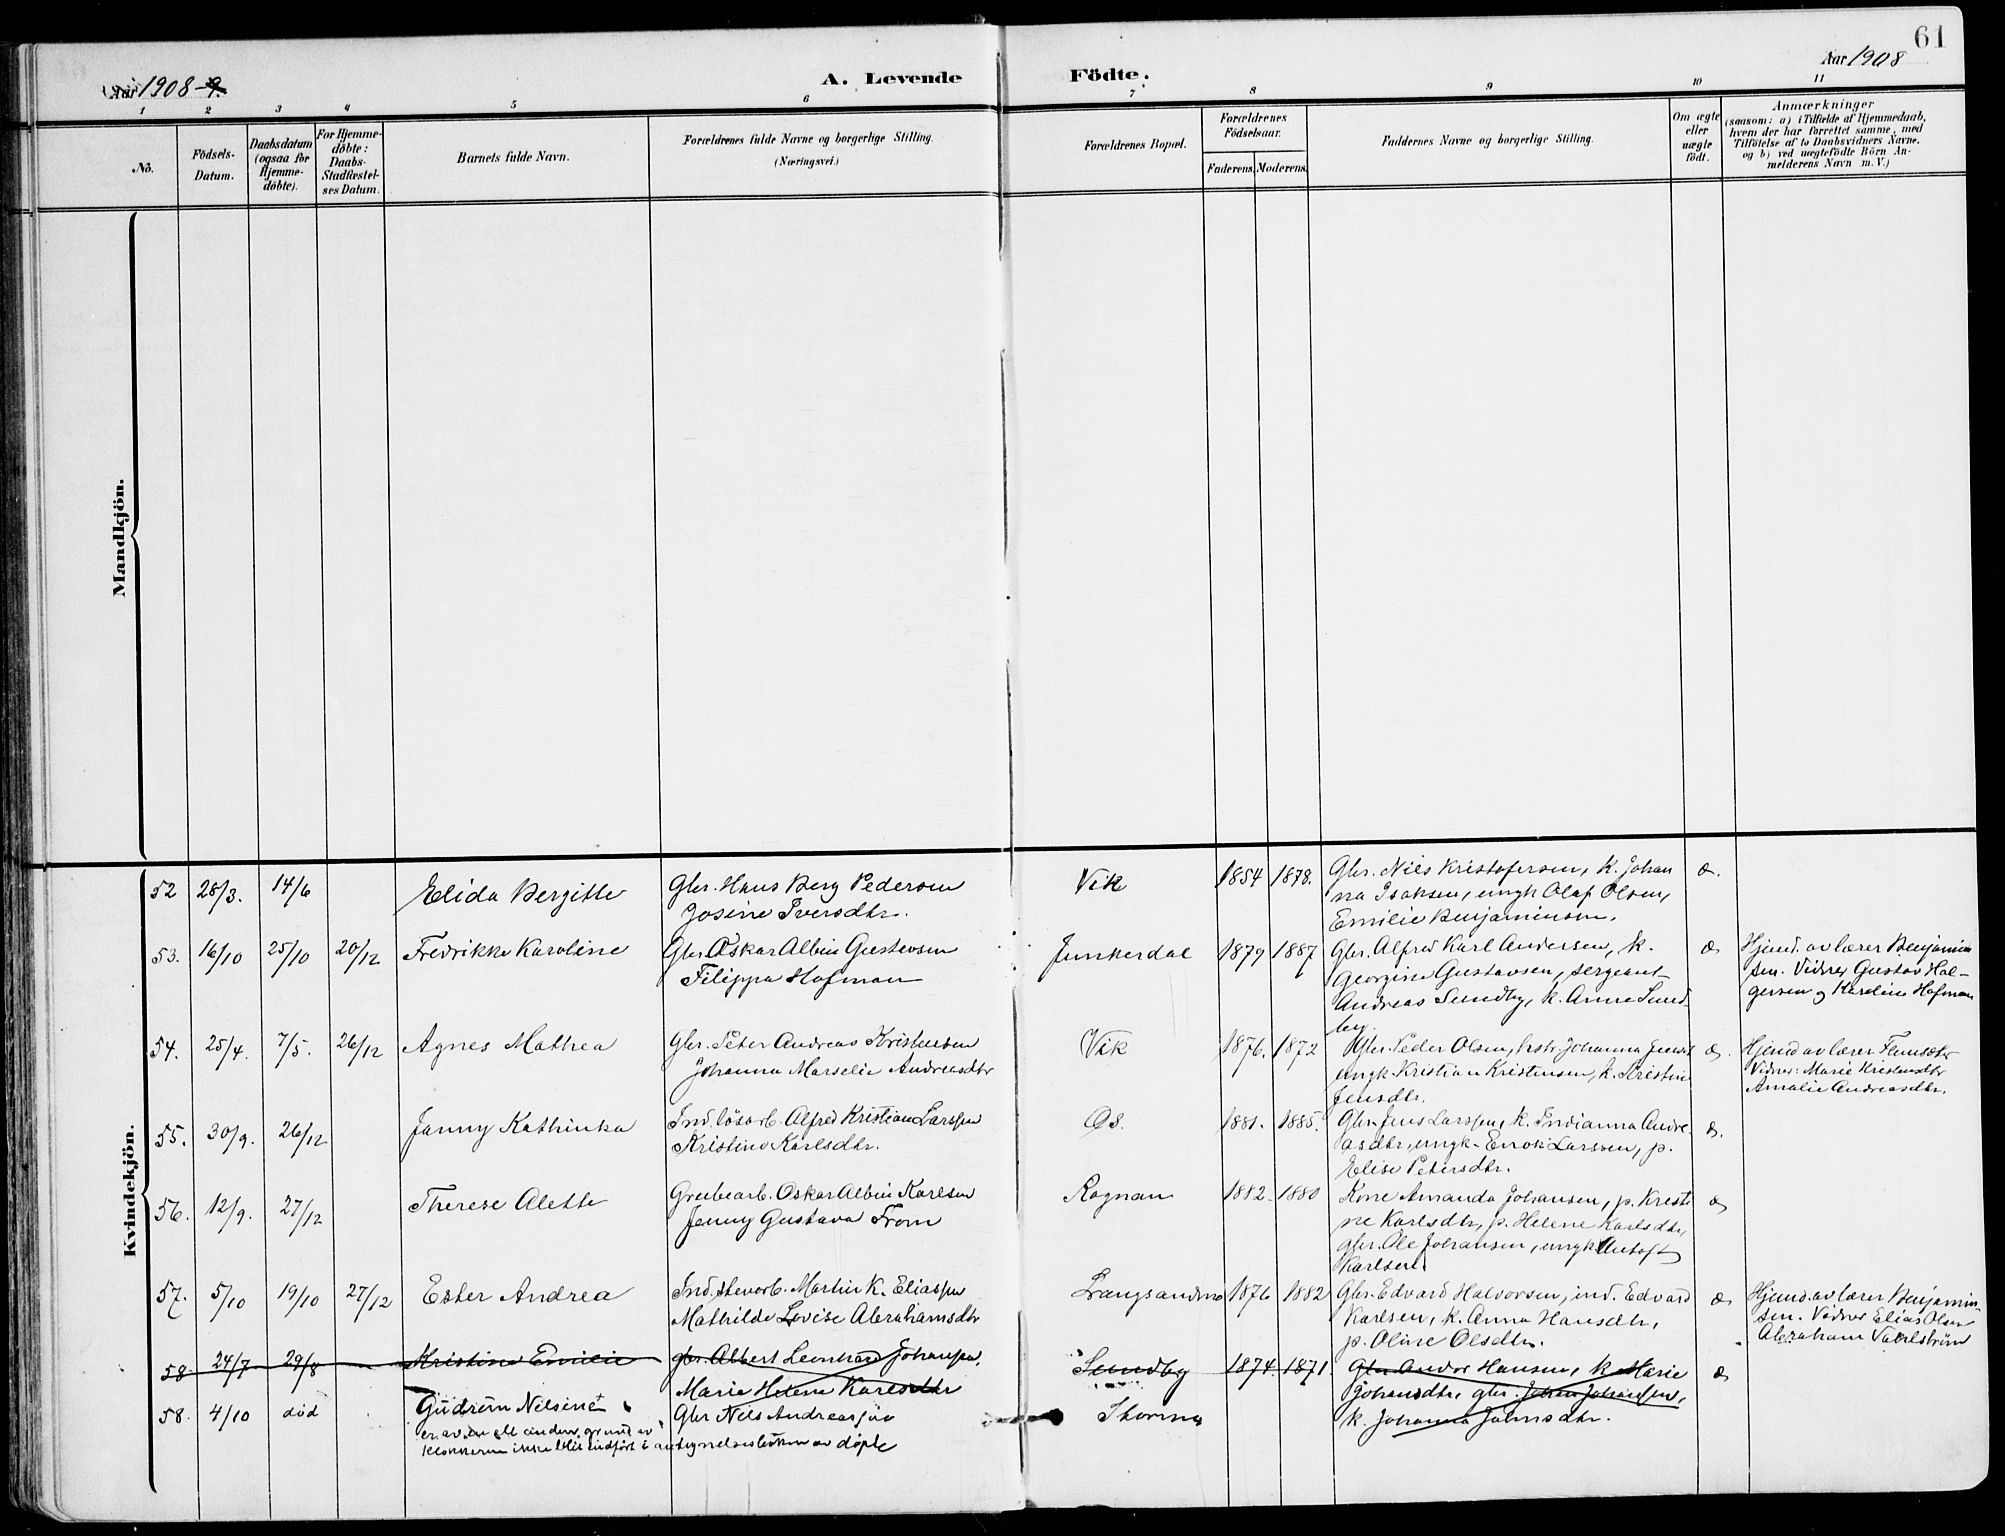 61
Aar 1908-9.
A. Levende
Födte.
Aar 1908
1 2 3 4 5 6 7 8 9 10 11
No.
Födsels-
Datum.
Daabsdatum
(ogsaa for
Hjemme-
döbte).
For Hjemme-
döbte:
Daabs-
Stadfæstel-
ses Datum.
Barnets fulde Navn.
Forældrenes fulde Navne og borgerlige Stilling.
(Næringsvei.)
Forældrenes Bopæl.
Forældrenes
Födselsaar.
Faderens. Moderens.
Faddernes Navne og borgerlige Stilling.
Om ægte
eller
uægte
födt.
Anmærkninger
(saasom: a) i Tilfælde af Hjemmedaab,
hvem der har forrettet samme, med
Tilföielse af to Daabsvidners Navne,
og b) ved uægtefödte Börn An-
melderens Navn m. V.)
Mandkjön.
Kvindekjön.
52 28/3. 14/6 Elida Bergitte
Gbr. Hans Berg Pedersen
Josine Iversdtr.
Vik 1854 1878.
Gbr. Niels Kristofersen, k. Johan
na Isaksen, ungk Olaf Olsen,
Emilie Benjaminsen.
æ.
53. 16/10 25/10 20/12 Fredrikke Karoline
Gbr. Oskar Albin Gustavsen
Filippa Hofman
Junkerdal 1879 1887
Gbr. Alfred Karl Andersen, k.
Georgine Gustavsen, sergeant
Andreas Sundby, k. Anne Sund
by.
æ
Hjemd. av lærer Benjamin
sen. Vidner Gustav Hol-
gersen og Karoline Hofman
54. 25/4. 7/5. 26/12 Agnes Mathea
Gbr. Peter Andreas Kristensen
Johanna Marselie Andreasdtr
Vik 1876. 1872
Gbr. Peder Olsen, hstr. Johanna
ungk Kristian Kristensen, k. Kristine
Jensdtr.
æ.
Hjemd av lærer
Vidner: Marie Kristensdtr
Amalie Andreasdtr.
55. 30/9. 26/12 Janny Kathinka
Ind. lösarb. Alfred Kristian Larssen
Kristine Karlsdtr.
Os. 1881. 1885.
Gbr. Jens Larssen, k. Indianna Andre
asdtr, ungk. Enok Larssen, p.
Elise Petersdtr.
æ.
56. 12/9. 27/12 Therese Alette
Grubearb. Oskar Albin Karlsen
Jenny Gustava From
Rognan 1882. 1880
Kone Amanda Johansen, p. Kristi
ne Karlsdtr, p. Helene Karlsdtr,
gbr. Ole Johansen, ungk
Karlsen.
æ
57. 5/10 19/10 27/12 Ester Andrea
Ind. stenarb. Martin K. Eliassen
Mathilde Lovise Abrahamsdtr
Langsandmo 1876 1882
Gbr. Edvard Halvorsen, ind. Edvard
Karlsen, k. Anna Hansdtr,
p. Oline Olsdtr.
æ
Hjemd. av lærer Benjamin-
sen. Vidner Elias Olsen
Abraham
58 24/7 29/8 Kristine Emilie
gbr. Albert Leonhard Johansen,
Marie Helene Karlsdtr
Sundby 1874. 1871.
Gbr Andor Hansen, k Marie
Johansdtr, gbr. Johan Johansen,
k. Johanna Johnsdtr.
æ
58. 4/10 död Gudrun Nilsine
Gbr Nils Andreassen
Stormo
er av en el anden grund av
klokkeren ikke blit indfört i
av döpte